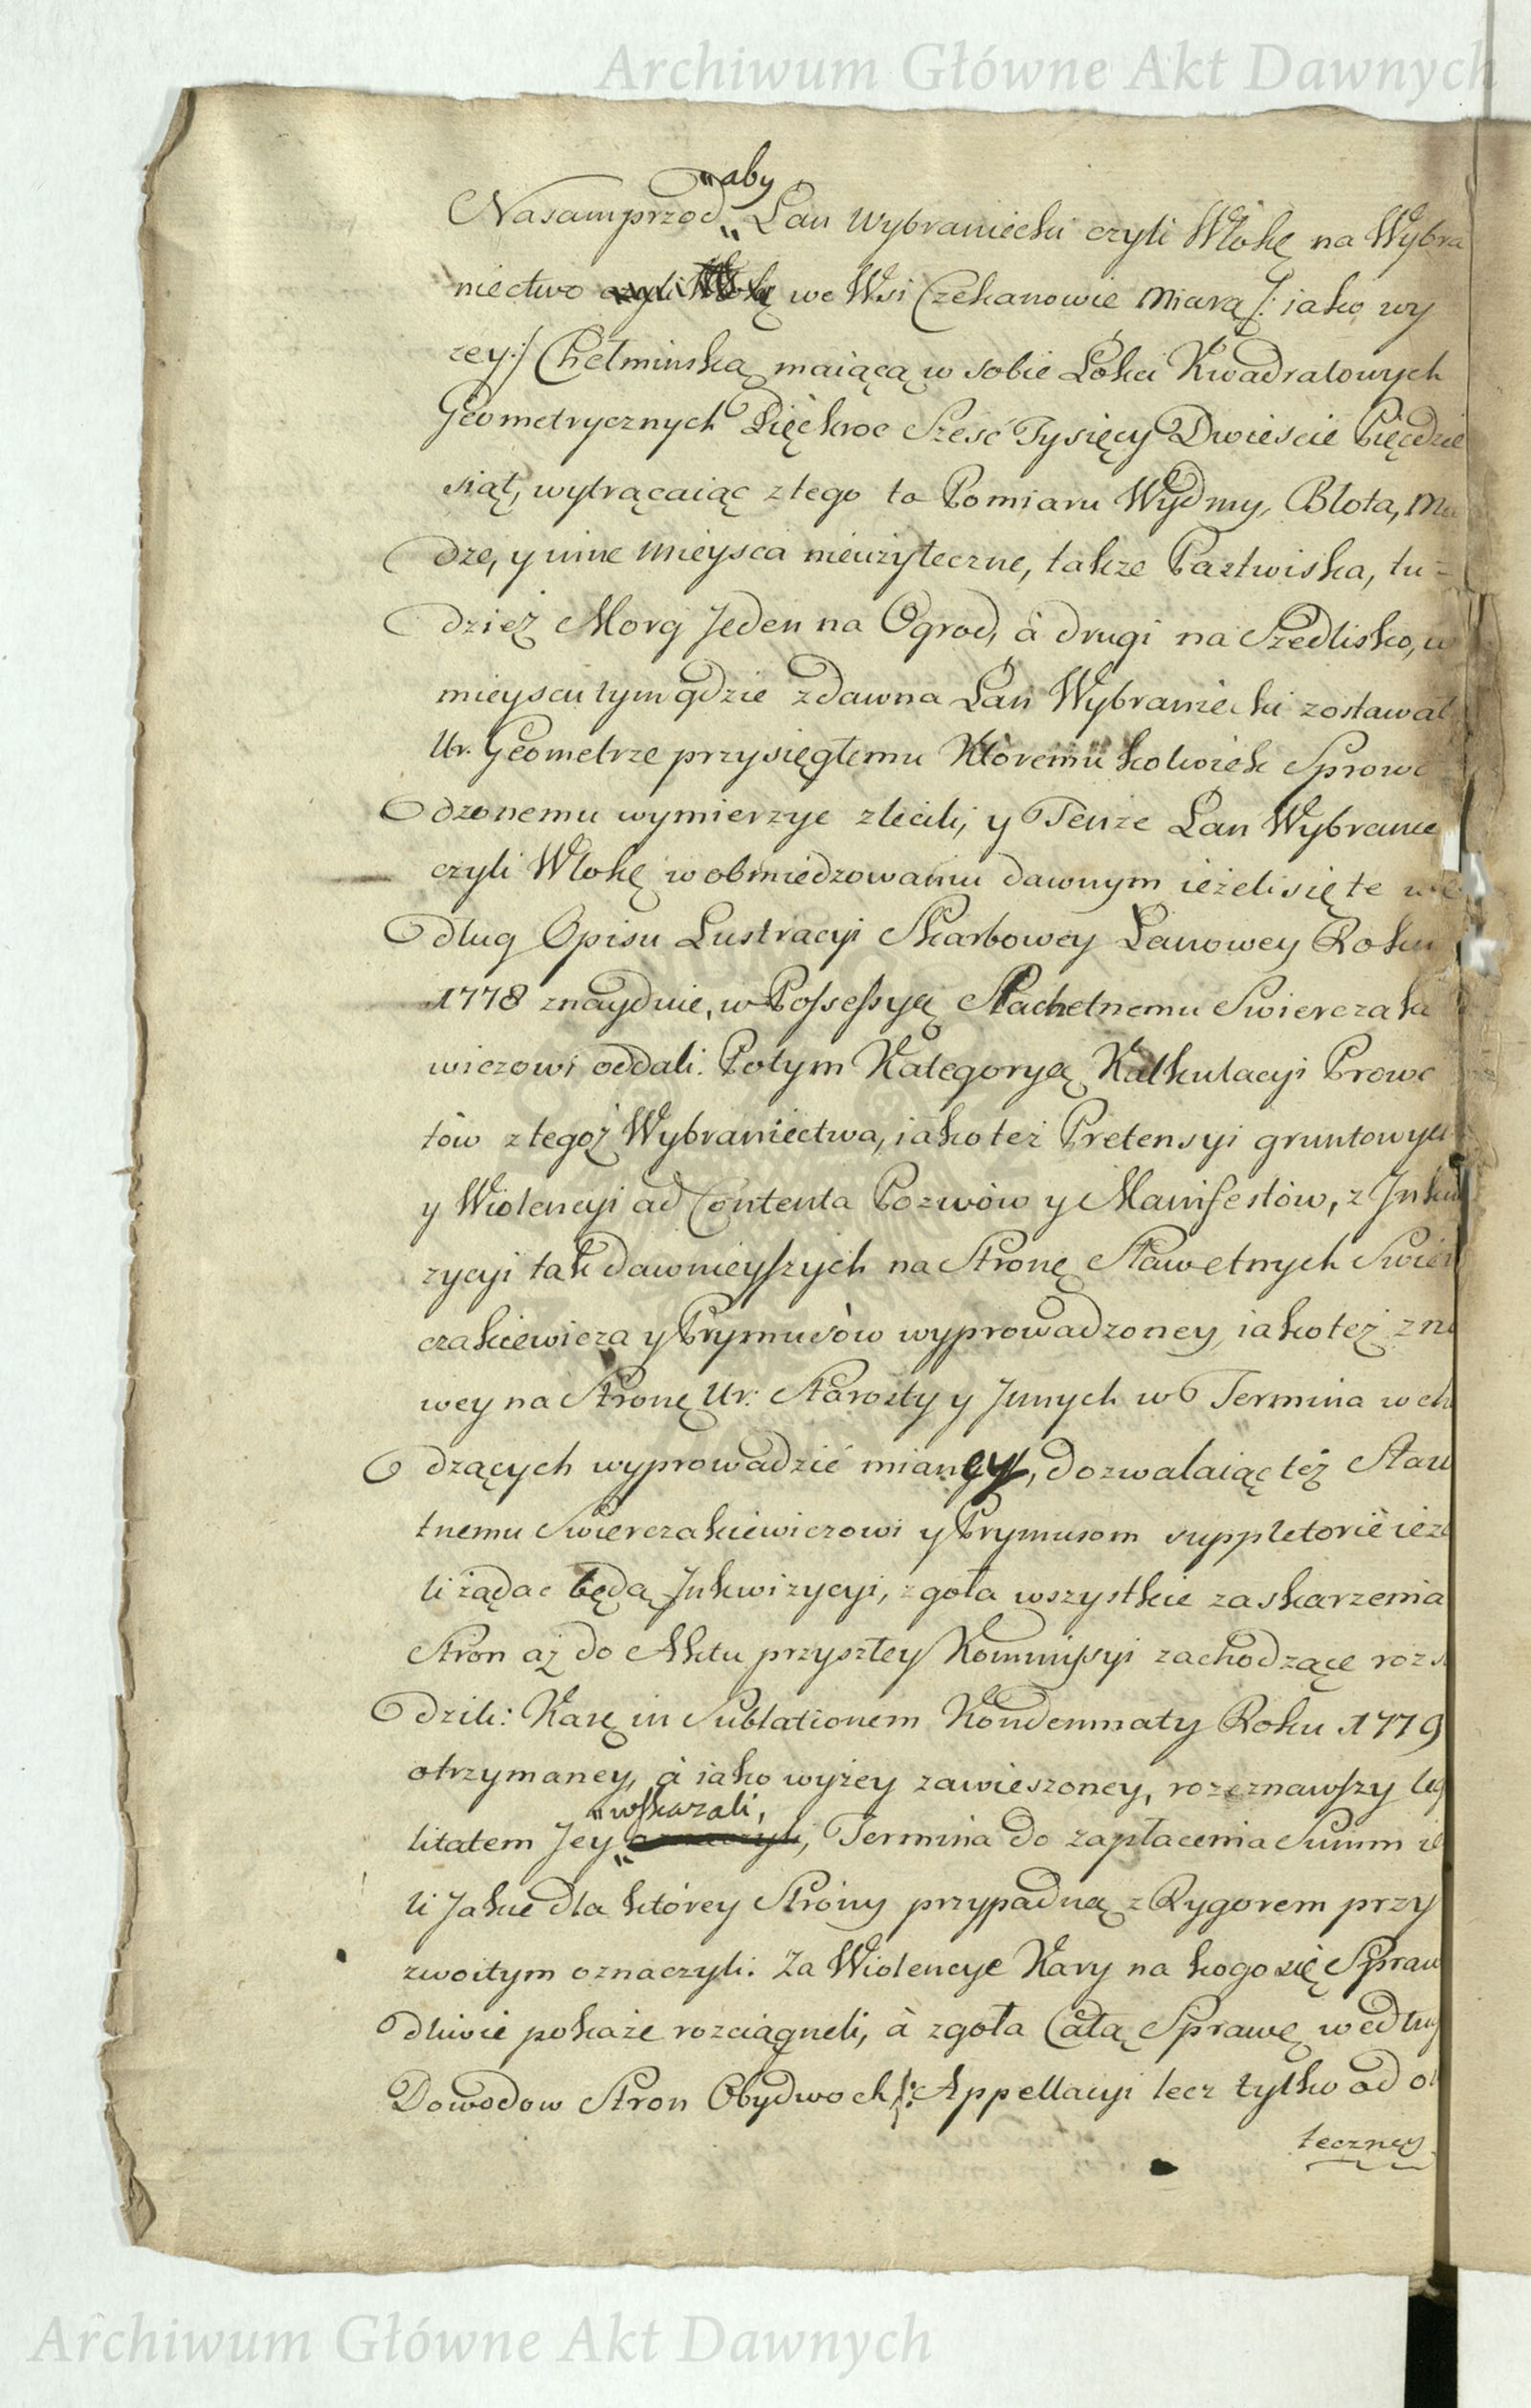 Archiwum Główne Akt Dawnych
"aby
Nasamprzod " Łan wybraniecki czyli Włokę na Wybra
niectwo czyli Włokę we Wsi Czekanowie Miarą /: iako wy
zey :/ Chełminską maiącą w sobie Łokci Kwadratowych
Geometrycznych Pięćkroc Szesć Tysięcy Dwieście Pięcdzie
siąt, wytrącaiąc z tego to Pomiaru Wydmy, Błota, Mie
dze, y inne mieysca nieużyteczne, także Pastwiska, tu=
dzież Morg Jeden na Ogrod, à drugi na Siedlisko, w
mieyscu tym gdzie zdawna Łan Wybraniecki zostawał
Ur. Geometrze przysięgłemu Któremu kolwiek Sprowa
dzonemu wymierzyc zlecili, y Tenże Łan Wybranie
czyli Włokę w obmiedzowaniu dawnym ieżeli się te we
dług Opisu Lustracyi Skarbowey Łanowey Roku
1778 znayduie, w Possessyą Słachetnemu Swierczakie
wiczowi oddali. Potym Kategoryą Kalkulacyi Prowe
tów z tegoż Wybraniectwa, iako też Pretensyi gruntowych
y Wiolencyi ad Contenta Pozwów y Manifestów, z Inkwi
zycyi tak dawnieyszych na Stronę Sławetnych Swier
czakiewicza y Prymusów wyprowadzoney, iako też z no
wey na Stronę Ur: Starosty y Innych w Termina wcho
dzących wyprowadzić mianey, dozwalaiąc też Sławe
tnemu Swierczakiewiczowi y Prymusom suppletorie ieże
li żądac będą Inkwizycyi, zgoła wszystkie zaskarzenia
Stron aż do Aktu przyszłey Kommissyi zachodzące rozs
dzili: Karę in Sublationem Kondemnaty Roku 1779
otrzymaney, à iako wyżey zawieszoney, rozeznawszy leg
"wskazali,
litatem Jey " oznaczyli, Termina do zapłacenia Summ ie
li Jakie dla którey Strony przypadną z Rygorem przy
zwoitym oznaczyli. Za Wiolencye Kary na kogo się Spraw
dliwie pokaże rozciągneli, à zgoła Całą Sprawę według
Dowodow Stron Obydwoch /: Appellacyi lecz tylko od o
teczney
Archiwum Główne Akt Dawnych